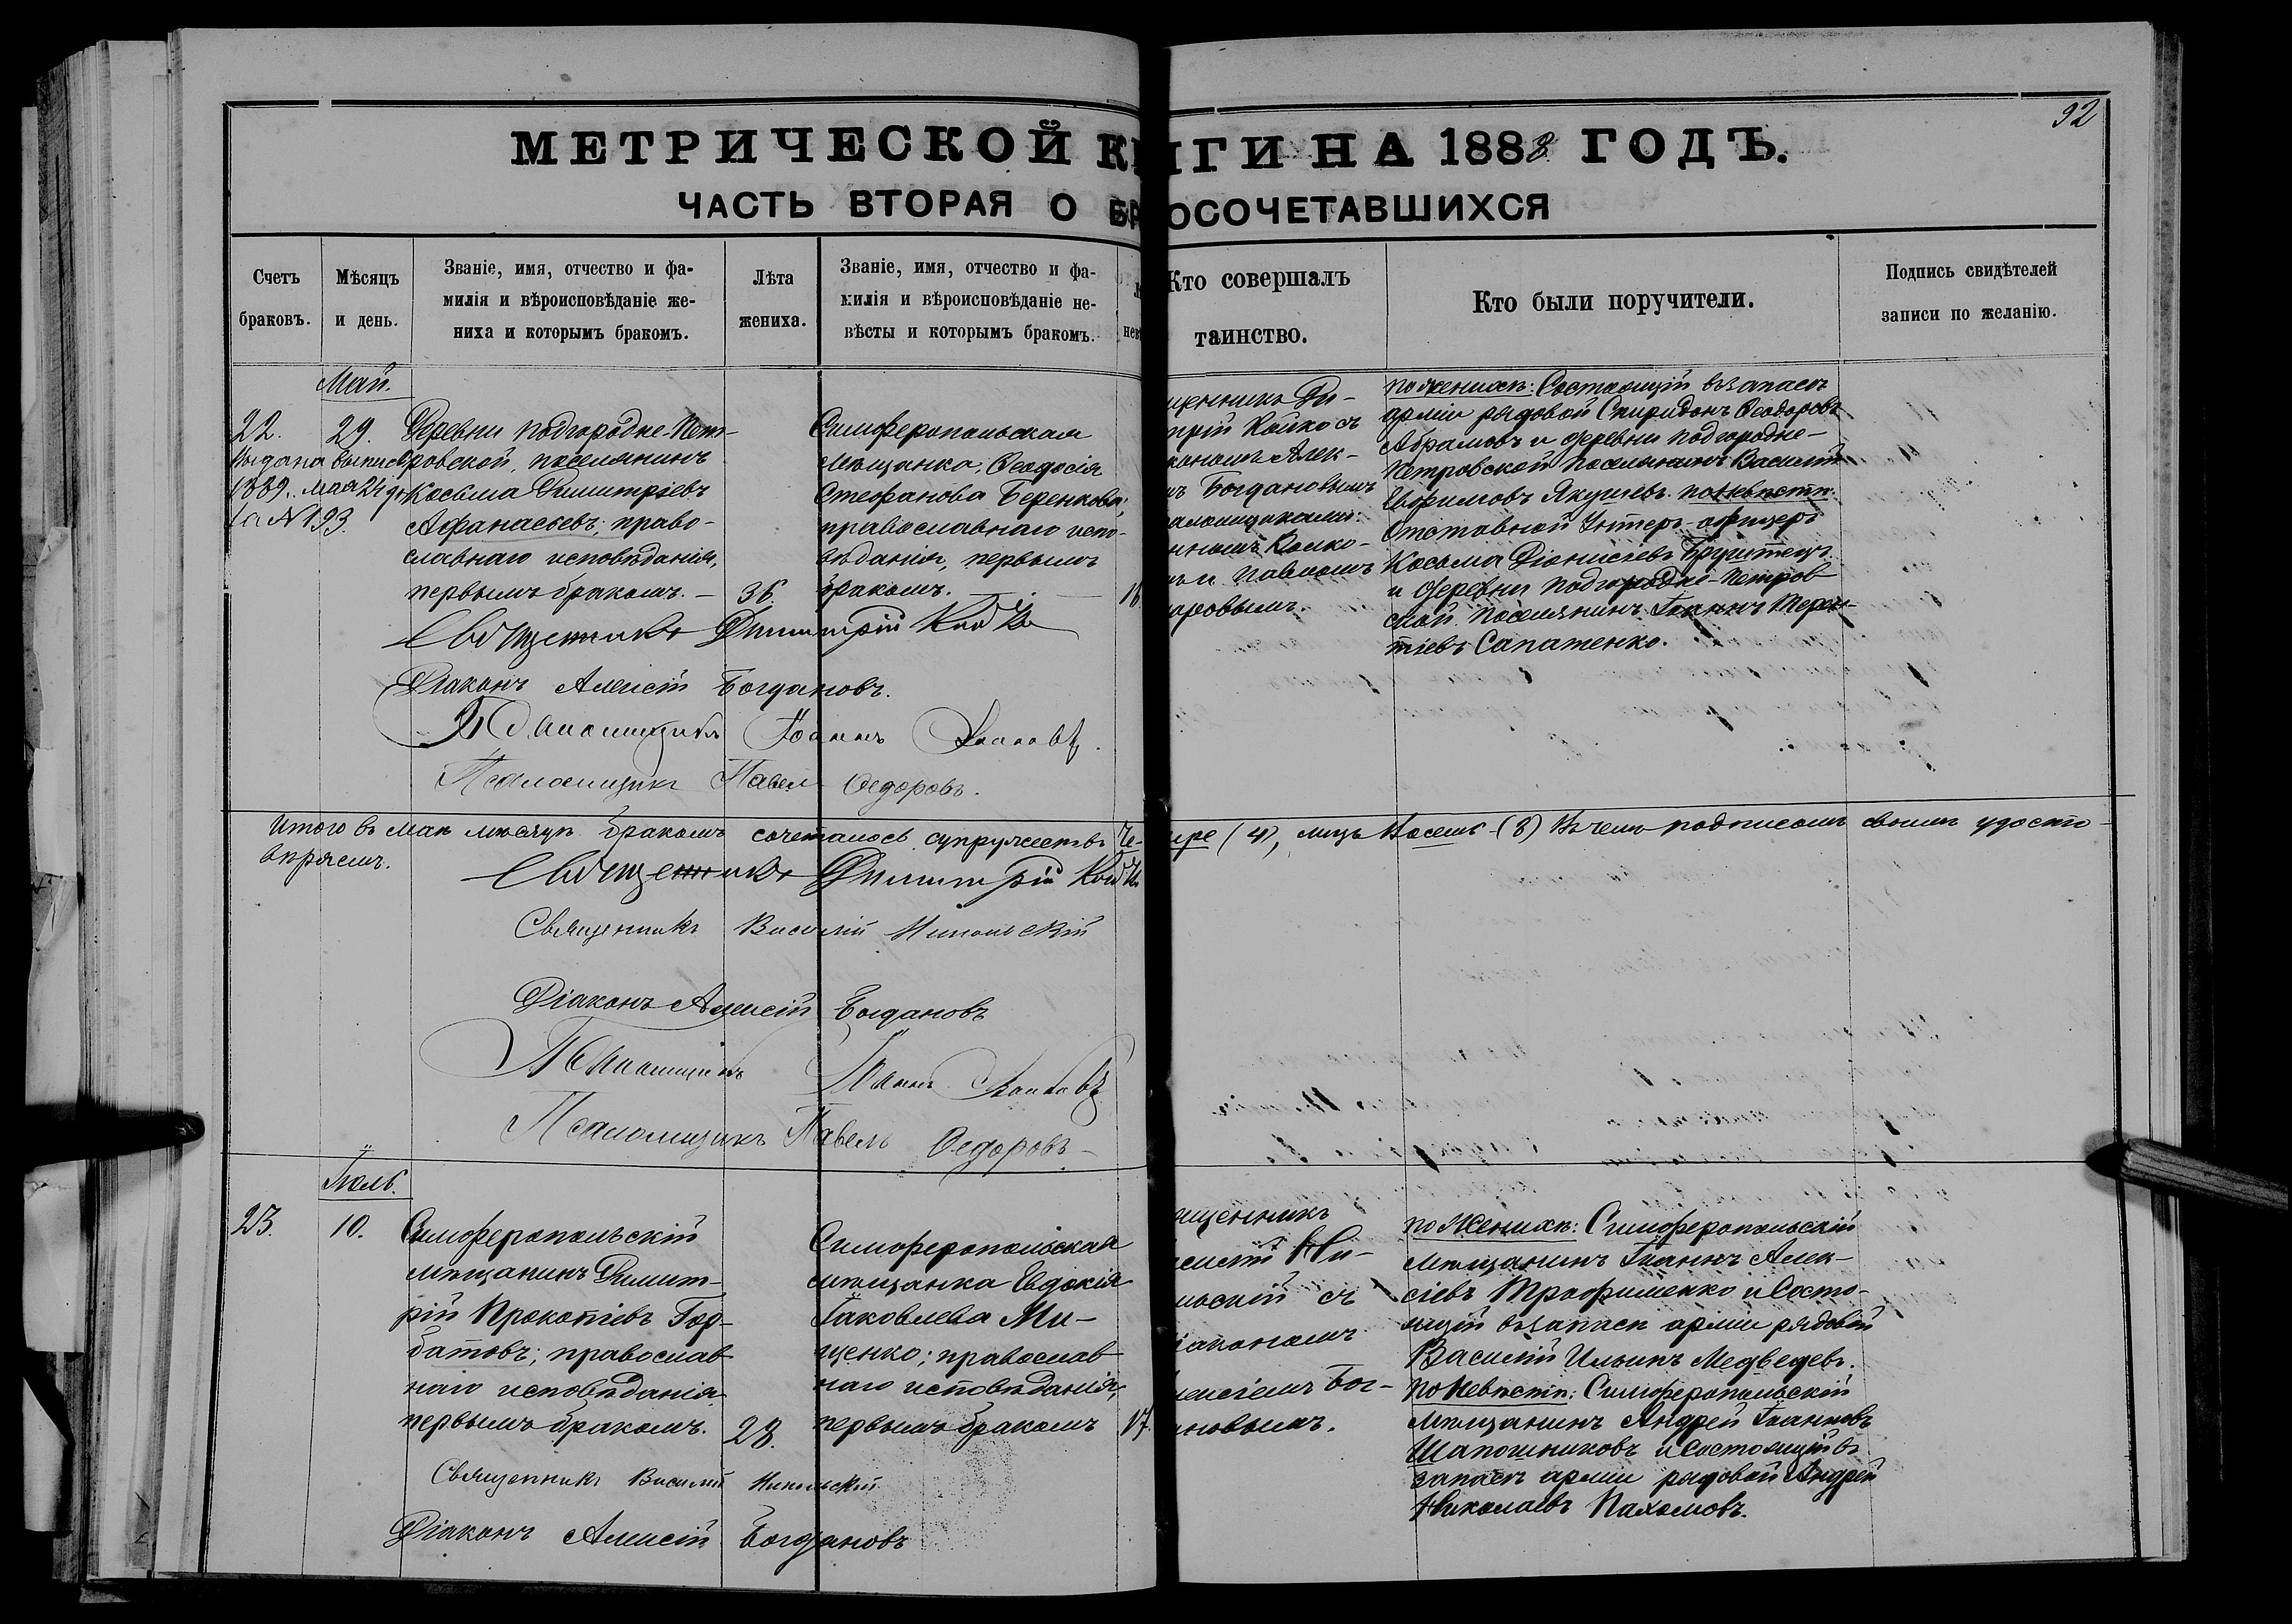 92
МЕТРИЧЕСКОЙ КНИГИ НА 1888 ГОДЪ.
ЧАСТЬ ВТОРАЯ О БРАКОСОЧЕТАВШИХСЯ
Счетъ
браковъ.
Мѣсяцъ
и день.
Званіе, имя, отчество и фа-
милія и вѣроисповѣданіе же-
ниха и которымъ бракомъ.
Лѣта
жениха.
Званіе, имя, отчество и фа-
милія и вѣроисповѣданіе не-
вѣсты и которымъ бракомъ.
нев
Кто совершалъ
таинство.
Кто были поручители.
Подпись свидѣтелей
записи по желанію.
Май.
22.
29.
Выдана выпись
1889. мая 24 д.
за № 193.
Деревни Подгородне-Пет-
ровской, поселянинъ
Косьма Димитріевъ
Афанасьевъ; право-
славнаго исповѣданія,
первымъ бракомъ. —
36.
Симферопольская
мѣщанка, Ѳеодосія
Стефанова Беренкова;
православнаго испо-
вѣданія, первымъ
бракомъ.
16
щенникъ Ди-
трій Койко съ
кономъ Алек-
мъ Богдановымъ
аломщиками:
нномъ Волко-
мъ и Павломъ
оровымъ.
по женихѣ: Состоящій въ запасѣ
арміи рядовой Спиридонъ Ѳеодоровъ
Абрамовъ и деревни Подгородне-
Петровской поселянинъ Василій
Ефимовъ Якушевъ. по невѣстѣ:
Отставной Унтеръ-офицеръ
Косьма Діонисіевъ
и деревни Подгородне-Петров-
ской поселянинъ Іоаннъ Терен-
тіевъ Сапатенко.
Священникъ Димитрій Койко
Діаконъ Алексій Богдановъ.
Псаломщикъ Іоаннъ Волковъ.
Псаломщикъ Павелъ Ѳедоровъ.
Итого въ маѣ мѣсяцѣ бракомъ сочеталось супружествъ че-
тыре (4), лицъ Восемь (8) Въ чемъ подписомъ своимъ удосто-
вѣряемъ.
Священникъ Димитрій Койко
Священникъ Василій Никольскій
Діаконъ Алексій Богдановъ
Псаломщикъ Іоаннъ Волковъ
Псаломщикъ Павелъ Ѳедоровъ
Іюль.
23.
10.
Симферопольскій
мѣщанинъ Димит-
рій Прокопіевъ Гор-
батовъ; православ-
наго исповѣданія,
первымъ бракомъ.
28.
Симферопольская
мѣщанка Евдокія
Іаковлева Ми-
щенко; православ-
наго исповѣданія,
первымъ бракомъ
17.
щенникъ
силій Ни-
льскій съ
іакономъ
лексіемъ Бог-
ановымъ.
по Женихѣ: Симферопольскій
мѣщанинъ Іоаннъ Алек-
сіевъ Трофименко и Состо-
ящій въ запасѣ арміи рядовой
Василій Ильинъ Медведевъ.
по Невѣстѣ: Симферопольскій
мѣщанинъ Андрей Іоанновъ
Шапошниковъ и состоящій въ
запасѣ арміи рядовой Андрей
Николаевъ Пахомовъ.
Священникъ Василій Никольскій
Діаконъ Алексій Богдановъ